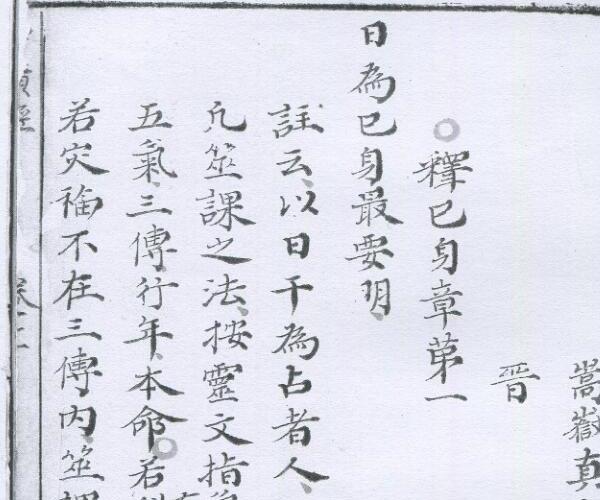 嵩嶽真
晉
釋已身章第一
日為已身最要明
註云以日干為占者人
凡筮課之法按靈文指
五氣三傳行年本命若
若灾福不在三傳内筮課